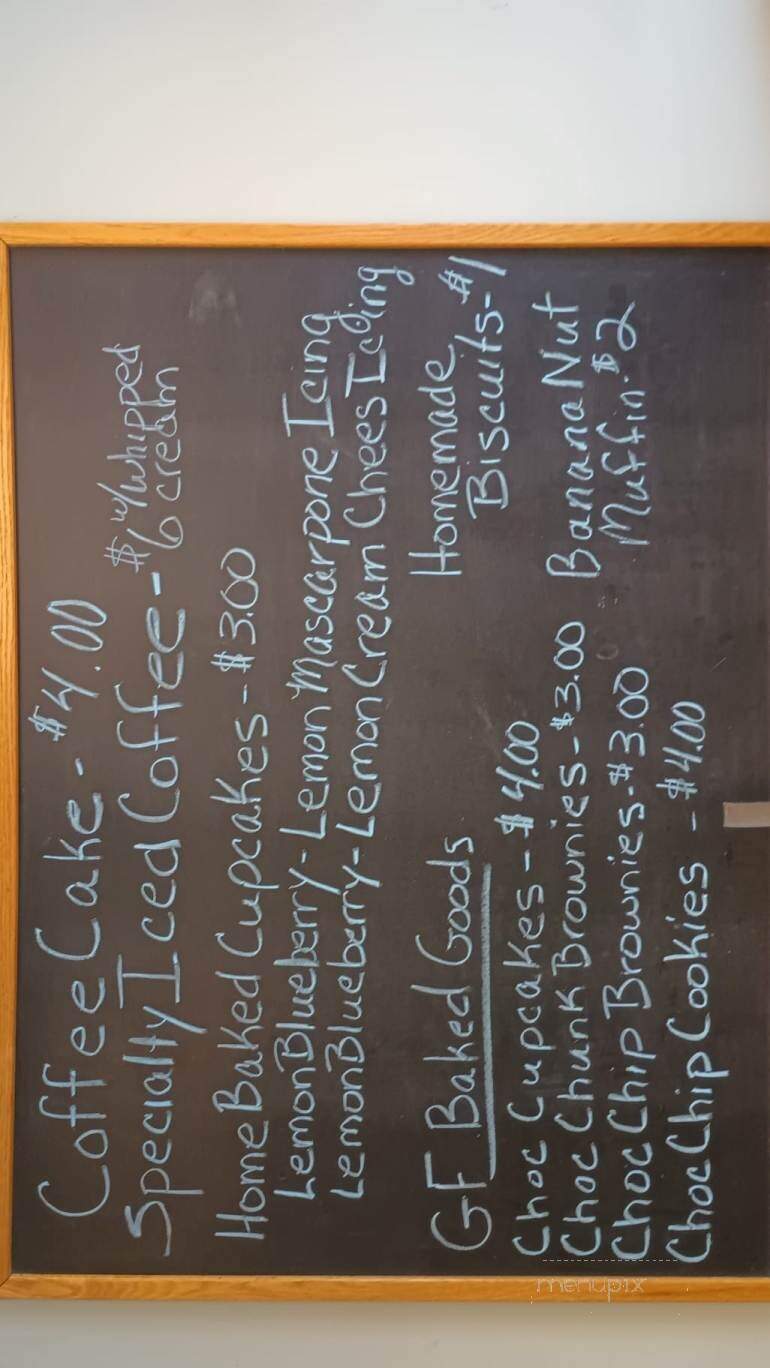 Coffee Cake - $4.00
Specialty Iced Coffee - $6 w/whipped cream
Home Baked Cupcakes - $3.00
Lemon Blueberry - Lemon Mascarpone Icing
Lemon Blueberry - Lemon Cream Chees Icing
Homemade
Biscuits - $1
GF Baked Goods
Choc Cupcakes - $4.00
Choc Chunk Brownies - $3.00
Choc Chip Brownies - $3.00
Choc Chip Cookies - $4.00
Banana Nut
Muffin - $2
menupix